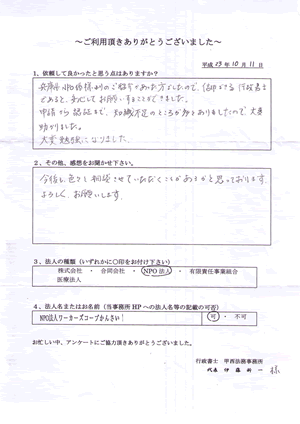 ～ご利用頂きありがとうございました～
平成 23年 10月 11日
1、依頼して良かったと思う点はありますか?
兵庫県 の ご紹介 でしたので、信頼できる行政書士
であると、安心してお願いすることができました。
申請から認証まで、知識不足のところが多々ありましたので、大変
助かりました。
大変勉強になりました。
2、その他、感想をお聞かせ下さい。
今後も、色々と相談させていただくことがあるかと思っております。
よろしく、お願いします。
3、法人の種類（いずれかに○印をお付け下さい）
株式会社 ・ 合同会社 ・ NPO法人 ・ 有限責任事業組合
医療法人
4、法人名またはお名前（当事務所HPへの法人名等の記載の可否）
NPO法人ワーカーズコープかんさい!
可 ・ 不可
お忙しい中、アンケートにご協力頂きありがとうございました。
行政書士 甲西法務事務所
代表 伊藤 新一 様